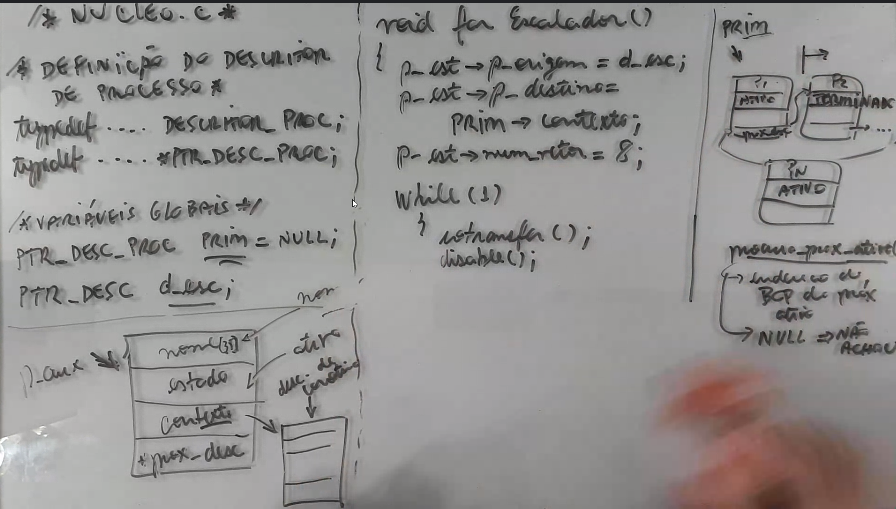 /* NUCLEO.C *
/* DEFINIÇÃO DO DESCRITOR
DE PROCESSO *
typedef .... DESCRITOR_PROC;
typedef .... *PTR_DESC_PROC;
/* VARIÁVEIS GLOBAIS */
PTR_DESC_PROC PRIM = NULL;
PTR_DESC d_esc;
p_aux
nome[35]
estado
contexto
*prox_desc
ativo
desc. de
void far Escalador()
{ p_est→p_origem = d_esc;
p_est→p_destino=
PRIM→contexto;
p_est→num_vetor = 8;
while(1)
{ iotransfer();
disable();
PRIM
P1
ATIVO
P2
TERMINADO
PN
ATIVO
procura_prox_ativo
→ endereço do
BCP do prox
ativo
→ NULL ⇒ NÃO
ACHOU